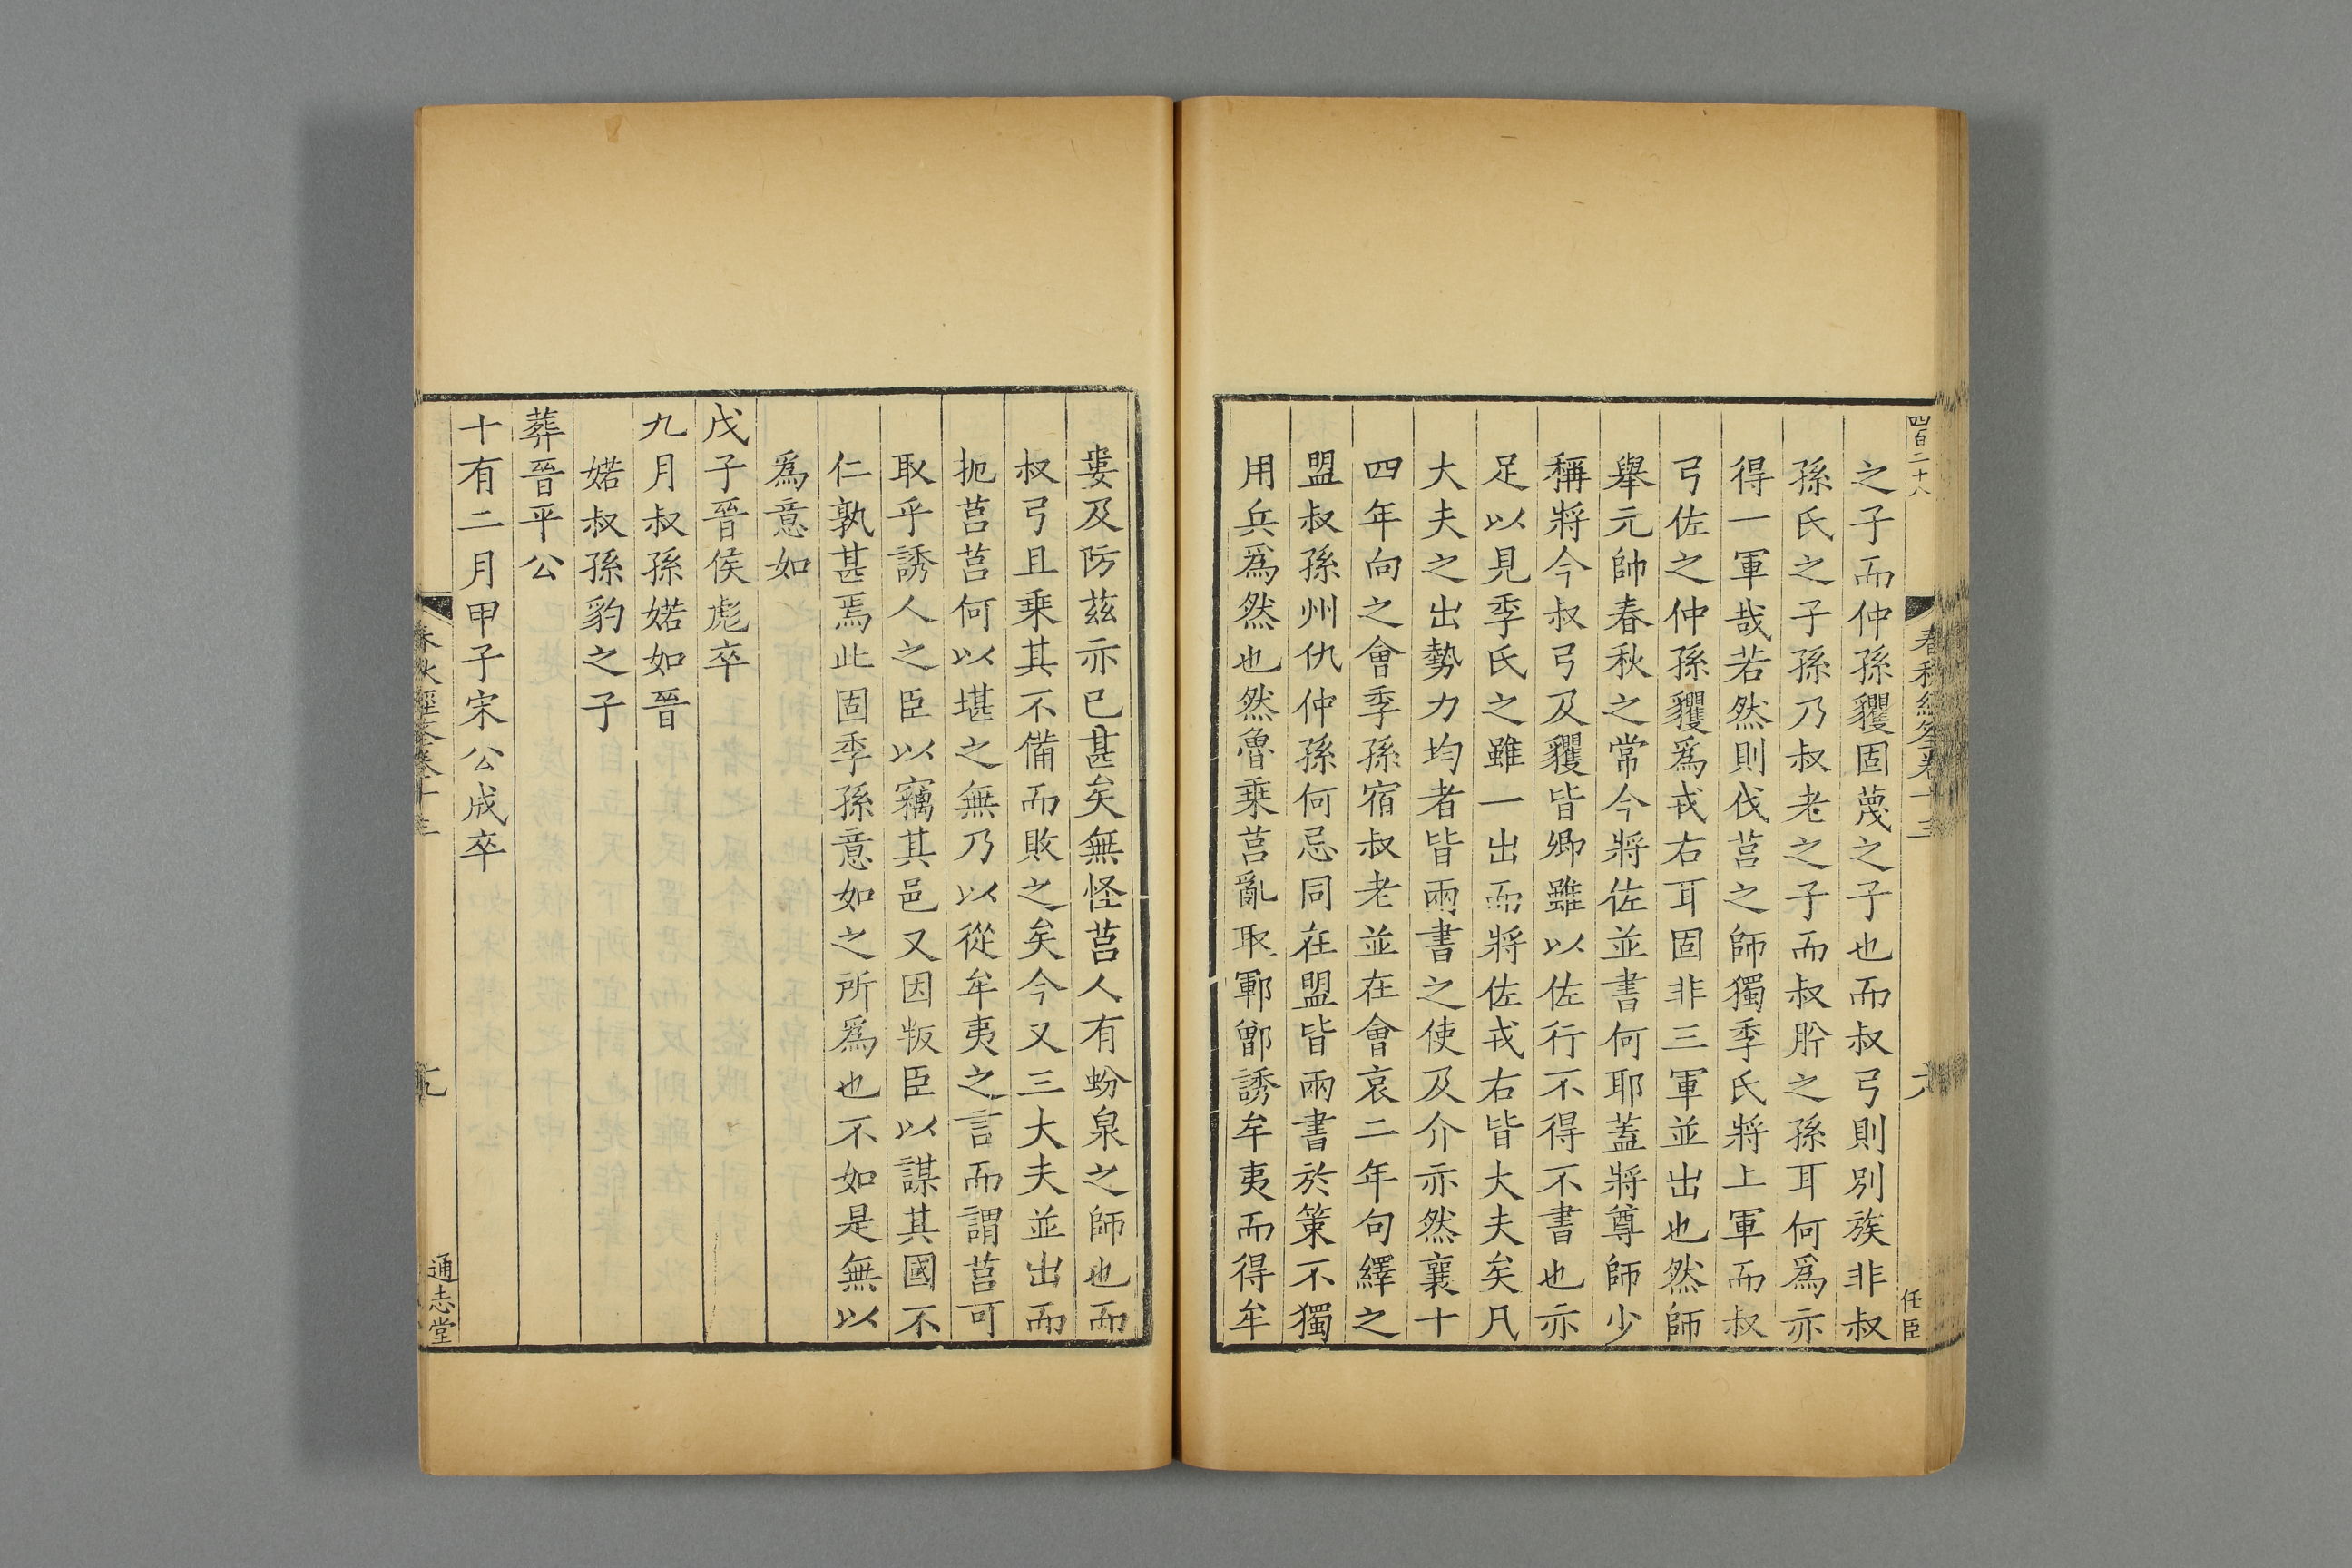 四百二十八
任臣
之子而仲孫貜固蔑之子也而叔弓則別族非叔
孫氏之子孫乃叔老之子而叔肸之孫耳何爲亦
得一軍哉若然則伐莒之師獨季氏將上軍而叔
弓佐之仲孫貜爲戎右耳固非三軍並出也然師
舉元帥春秋之常今將佐並書何耶蓋將尊師少
稱將今叔弓及貜皆卿雖以佐行不得不書也亦
足以見季氏之雖一出而將佐戎右皆大夫矣凡
大夫之出勢力均者皆兩書之使及介亦然襄十
四年向之會季孫宿叔老並在會哀二年句繹之
盟叔孫州仇仲孫何忌同在盟皆兩書於策不獨
用兵爲然也然魯乗莒亂取鄆鄫誘牟夷而得牟
婁及防茲亦已甚矣無怪莒人有蚡泉之師也而
叔弓且乗其不備而敗之矣今又三大夫並出而
扼莒莒何以堪之無乃以從牟夷之言而謂莒可
取乎誘人之臣以竊其邑又因叛臣以謀其國不
仁孰甚焉此固季孫意如之所爲也不如是無以
爲意如
戊子晉侯彪卒
九月叔孫婼如晉
婼叔孫豹之子
葬晉平公
十有二月甲子宋公成卒
通志堂